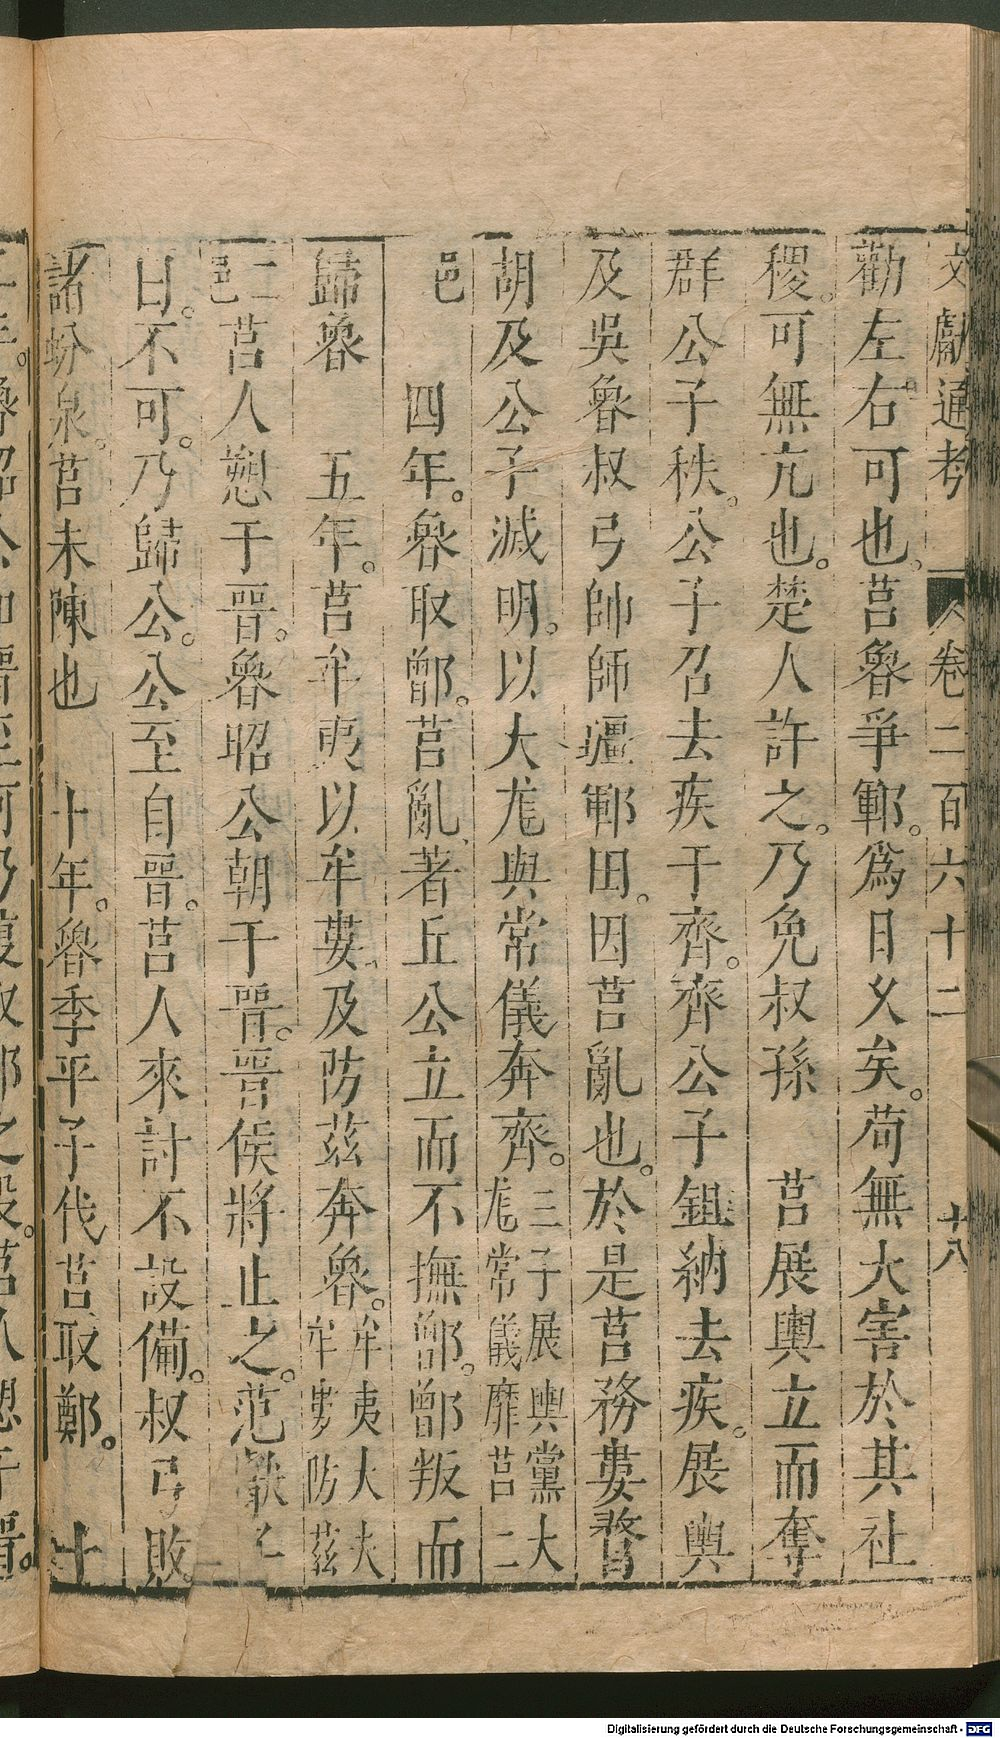 文獻通考 卷二百六十二 十八
勸左右可也。莒魯爭鄆。爲日久矣。苟無大害於其社
稷。可無亢也。楚人許之。乃免叔孫 莒展輿立而奪
群公子秩。公子召去疾于齊。齊公子鉏納去疾。展輿
及吳魯叔弓帥師疆鄆田。因莒亂也。於是莒務婁瞀
胡及公子滅明。以大厖與常儀奔齊。三子展輿黨大厖常儀靡莒二
邑 四年。魯取鄫。莒亂、著丘公立而不撫鄫。鄫叛而
歸魯 五年。莒牟夷以牟婁、及防茲奔魯。牟夷大夫牟婁防茲
二邑莒人愬于晉。魯昭公朝于晉。晉侯將止之。范獻子
曰。不可。乃歸公。公至自晉。莒人來討不設備。叔弓敗
諸蚡泉。莒未陳也 十年。魯季平子伐莒取鄭。 十
Digitalisierung gefördert durch die Deutsche Forschungsgemeinschaft - DFG